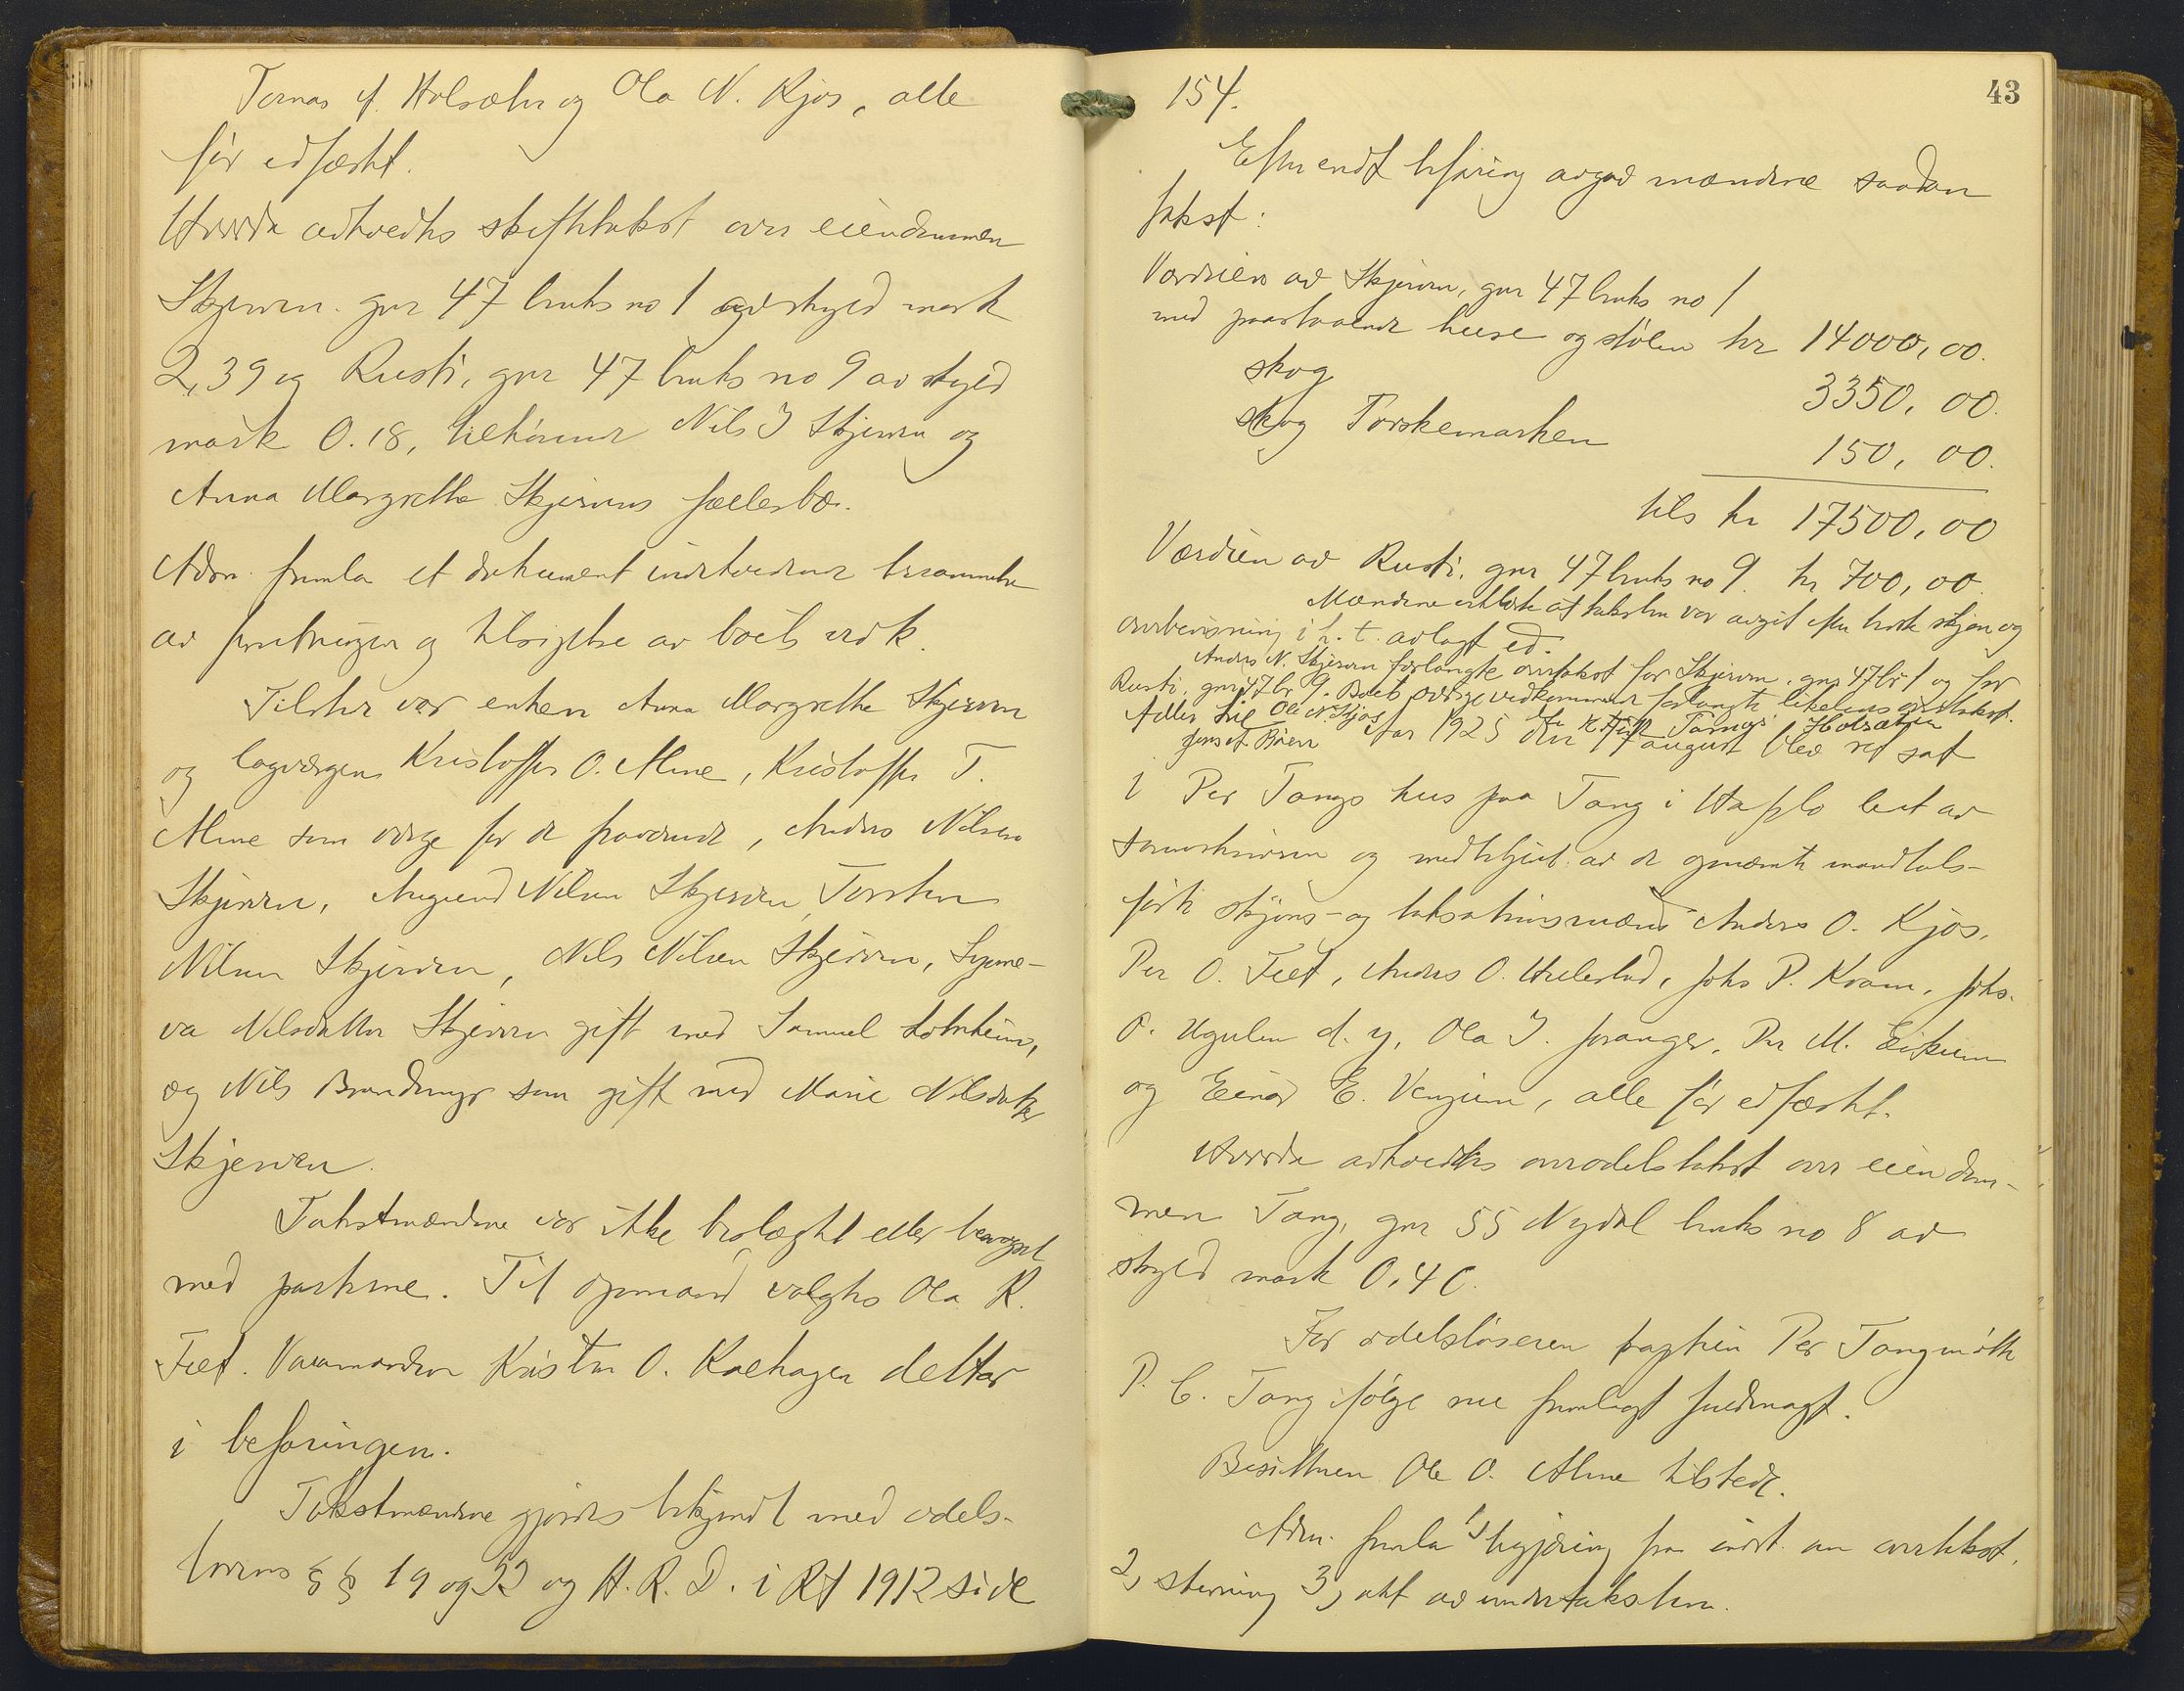 Tomas J. Holsæter og Ola N. Kjos, alle
før edfæstet.
Hvorda avholdtes skiftetakst over eiendommen
Skjerven gnr 47 bruks no 1 av skyld mark
2,39 og Rusti, gnr 47 bruks no 9 av skyld
mark 0.18, tilhørende Nils J Skjerven og
Anna Margrethe Skjervens fællesbo.
Adm. fremla et dokument indeholdende berammelse
av forretningen og tilsigelse av boets vedk.
Tilstede var enken Anna Margrethe Skjerven
og lagværgen Kristoffer O. Alme, Kristoffer T.
Alme som værge for de fraværende, Anders Nilsen
Skjerven, Augund Nilsen Skjerven, Torsten
Nilsen Skjerven, Nils Nilsen Skjerven, Synne-
va Nilsdatter Skjerven gift med Samuel Lotrheim,
og Nils som gift med Marie Nilsdatter
Skjerven.
Takstmændene var ikke beslægtet eller besvogret
med parterne. Til opmand valgtes Ola R.
Fet. Varamanden Kristen O. Kalhagen deltar
i befaringen.
Takstmændene gjordes bekjendt med odels-
lovens §§ 19 og 22 og H. R. D. i Rt 1912 side
43
154.
Efter endt befaring avgav mændene saadan
takst:
Værdien av Skjerven, gnr 47 bruks no 1
med paastaaende huse og stølen kr 14000,00.
skog 3350,00.
skog Torskemarken 150,00.
tils kr 17500,00
Værdien av Rusti, gnr 47 bruks no 9. kr 700,00.
Mændene erklærte at taksten var avgit efter bedste skjøn og
overbevisning i h. t. avlagt ed.
Anders N. Skjerven forlangte overtakst for Skjerven, gnr 47 br 1 og for
Rusti, gnr 47 br 9. Boets øvrige vedkommende forlangte likeledes overtakst.
Ole N. Kjos Holsæter
Aar 1925 den 17 august blev ret sat
i Per Tangs hus paa Tang i Hafslo ledet av
sorenskriveren og med bistand av de opnævnte mandtals-
førte skjøns- og taksationsmænd Anders O. Kjos,
Per O. Fet, Anders O. Hillestad, Johs P. Kvam, Johs.
O. Ugulen d. y, Ola J. Joranger, Per M. Eikum
og Einar E. Venjum, alle før edfæstet.
Hvorda avholdtes overodelstakst over eiendom-
men Tang, gnr 55 Nydal bruks no 8 av
skyld mark 0,40.
For odelsløseren kaptein Per Tang møtte
P. C. Tang ifølge nu fremlagt fuldmagt.
Besitteren Ole O. Alme tilstede.
Adm. fremla 1) begjæring fra indst. om overtakst,
2, stevning 3, akt av undertaksten.